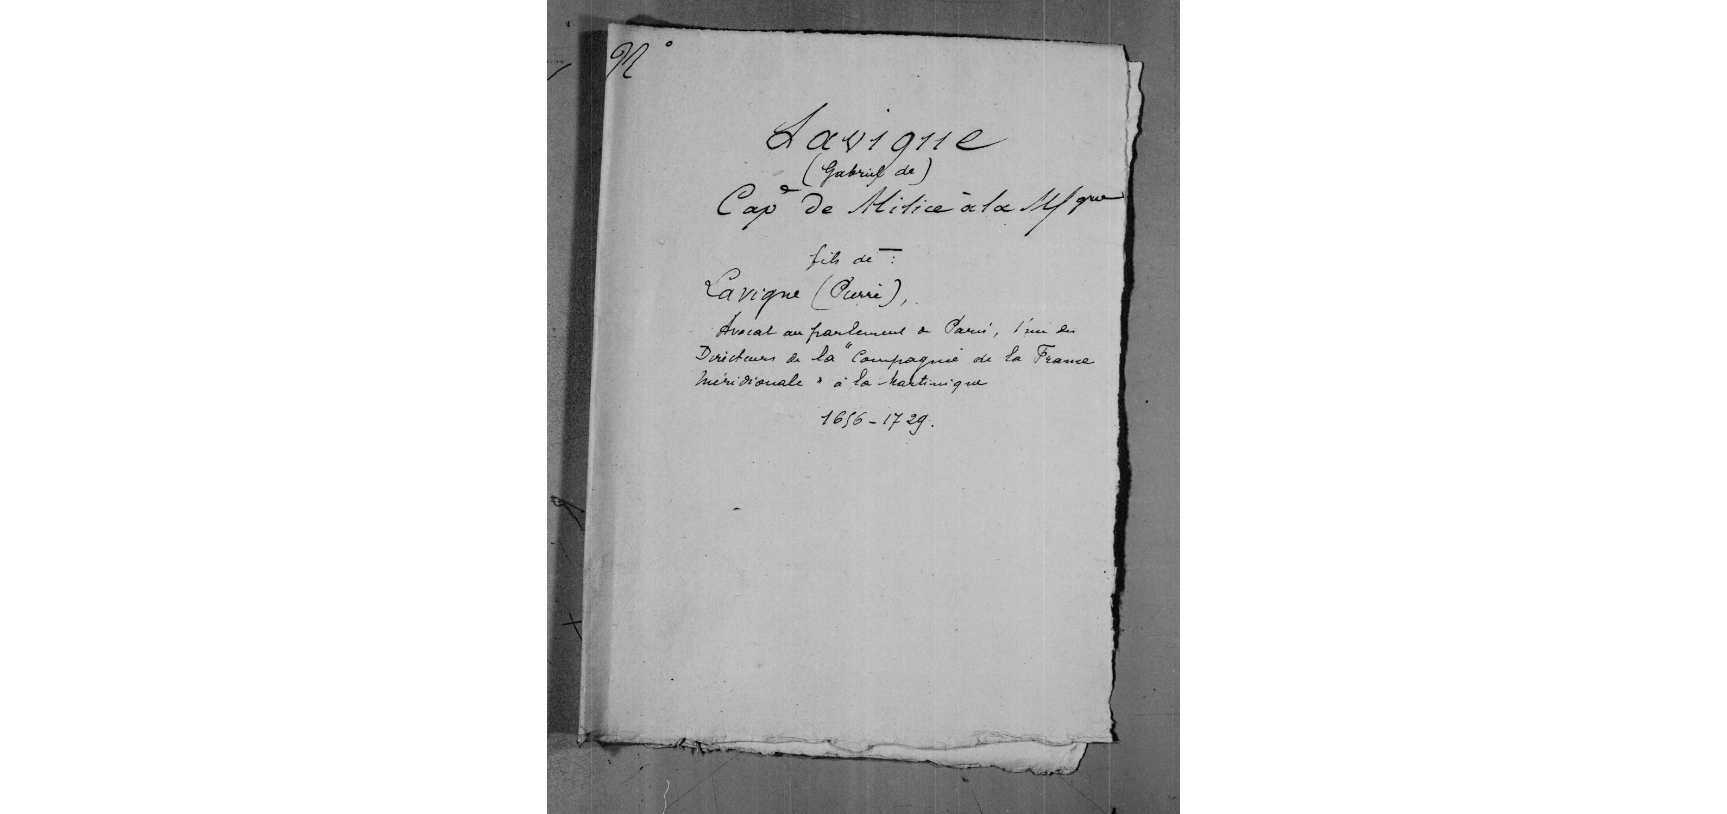 N°
Lavigne
(Gabriel de)
Cap^e de Milice à la M^que
fils de :
Lavigne (Pierre),
Avocat au parlement de Paris, l'un des
Directeurs de la "Compagnie de la France
Méridionale" à la Martinique
1656-1729.